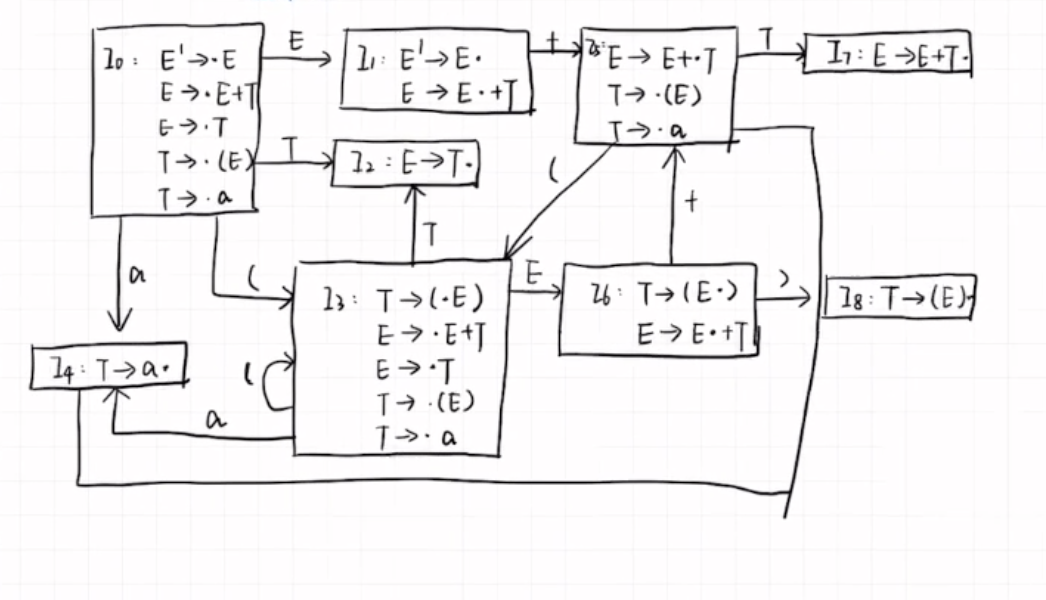 I₀: E'→·E
E→·E+T
E→·T
T→·(E)
T→·a
E
I₁: E'→E·
E→E·+T
+
I₅: E→E+·T
T→·(E)
T→·a
T
I₇: E→E+T·
T
I₂: E→T·
(
+
T
a
(
I₃: T→(·E)
E→·E+T
E→·T
T→·(E)
T→·a
E
I₆: T→(E·)
E→E·+T
)
I₈: T→(E)·
I₄: T→a·
(
a